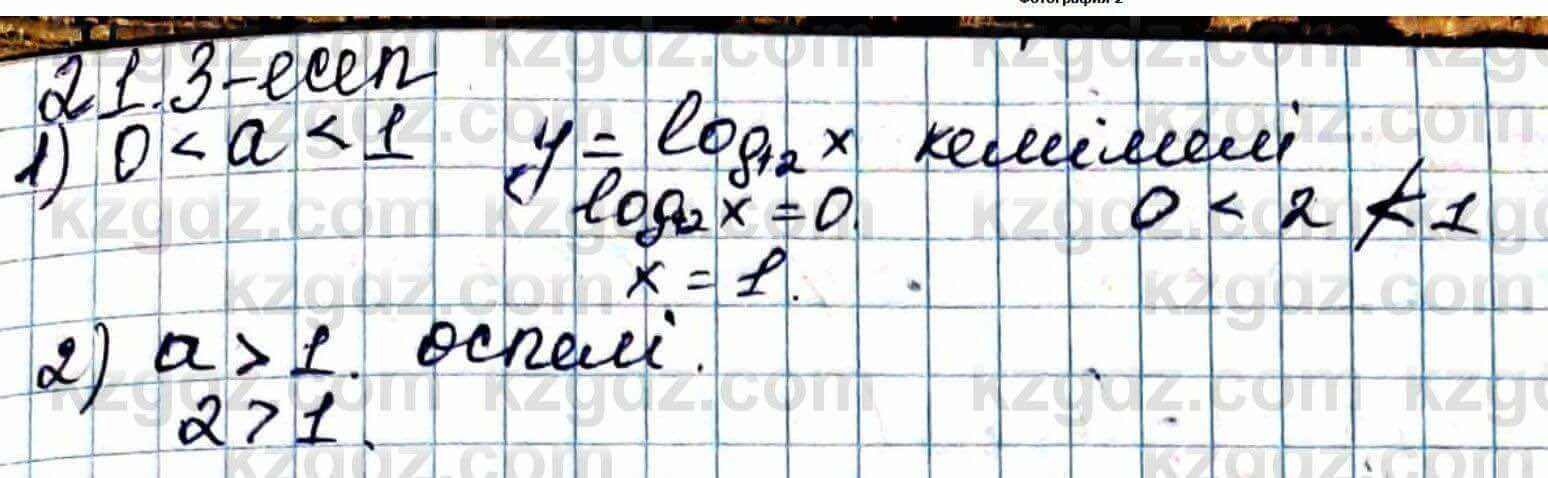 Фотография 2
21.3-есеп
1) 0 < a < 1 y = log₊₂ x кемімелі
log₊₂ x = 0. 0 < 2 ≮ 1
x = 1.
2) a > 1. өспелі.
2 > 1.
kzgdz.com